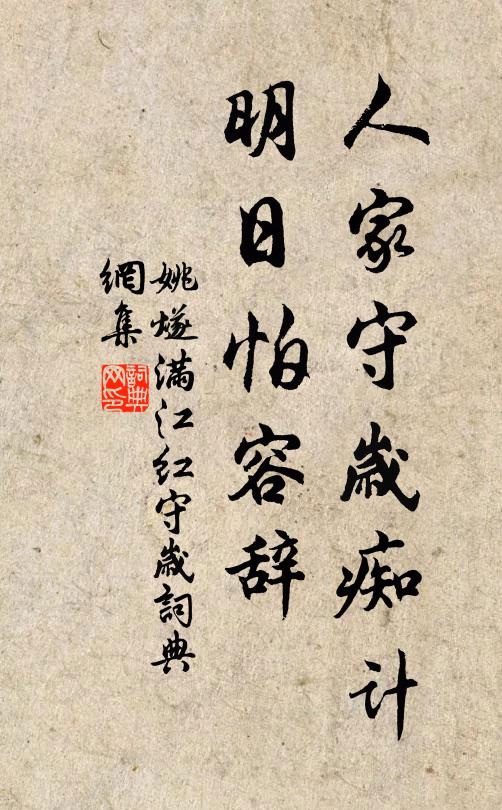 人家守歲痴计
明日怕容辞
姚燧满江红守歲詞典
網集
詞典网印